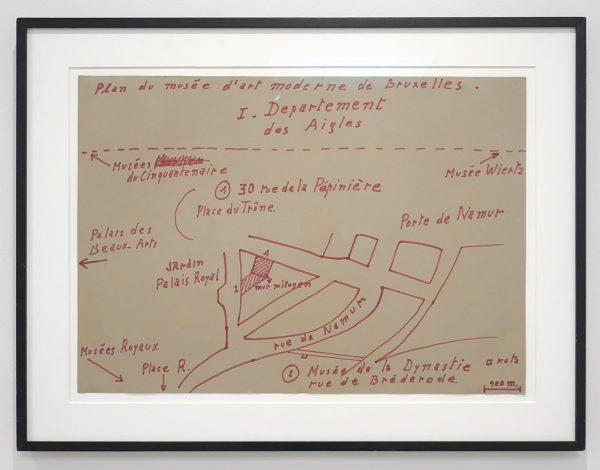 Plan du musée d'art moderne de Bruxelles.
I. Departement
des Aigles
Musées
du Cinquantenaire
Musée Wiertz
1 30 rue de la Pépinière
Place du Trône.
Porte de Namur
Palais des
Beaux-Arts
Jardin
Palais Royal
1
2
mur mitoyen
rue de Namur
Musées Royaux
Place R.
2 Musée de la Dynastie
rue de Bréderode.
100 m.